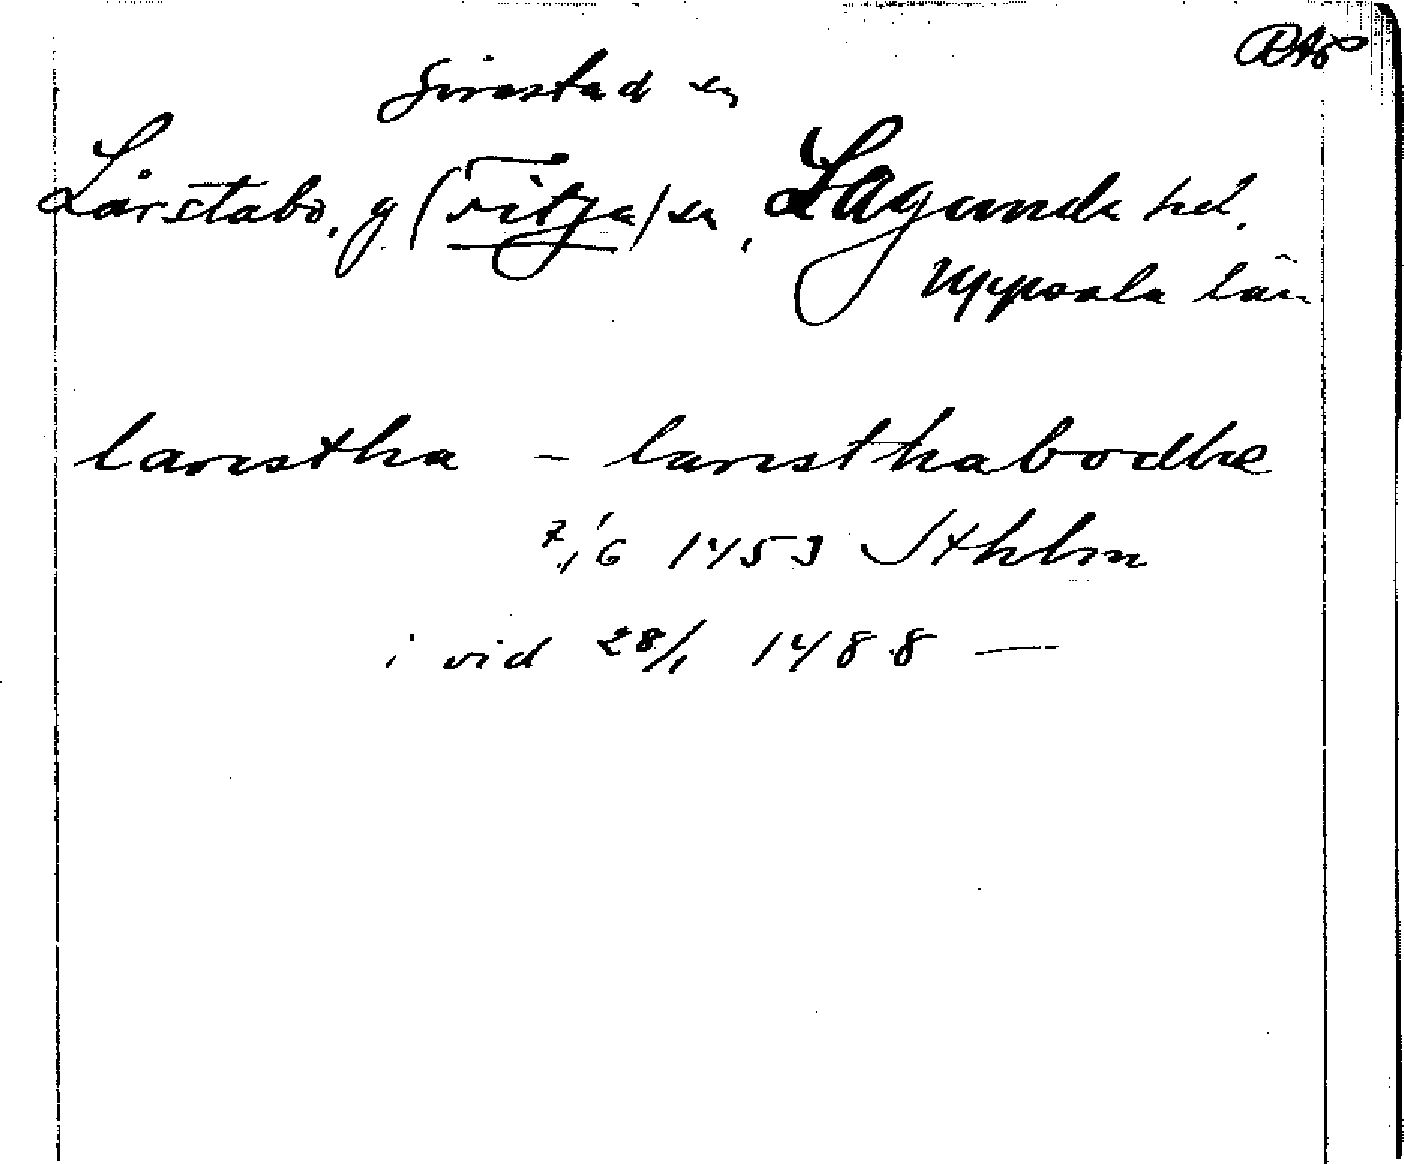 RAp
Giresta d sn
Lårstabo, g (Fitja) sn, Lagunda hd.
Uppsala län
larestha - laresthabodhe
7/6 1453 Sthlm
i vid 28/1 1488 —